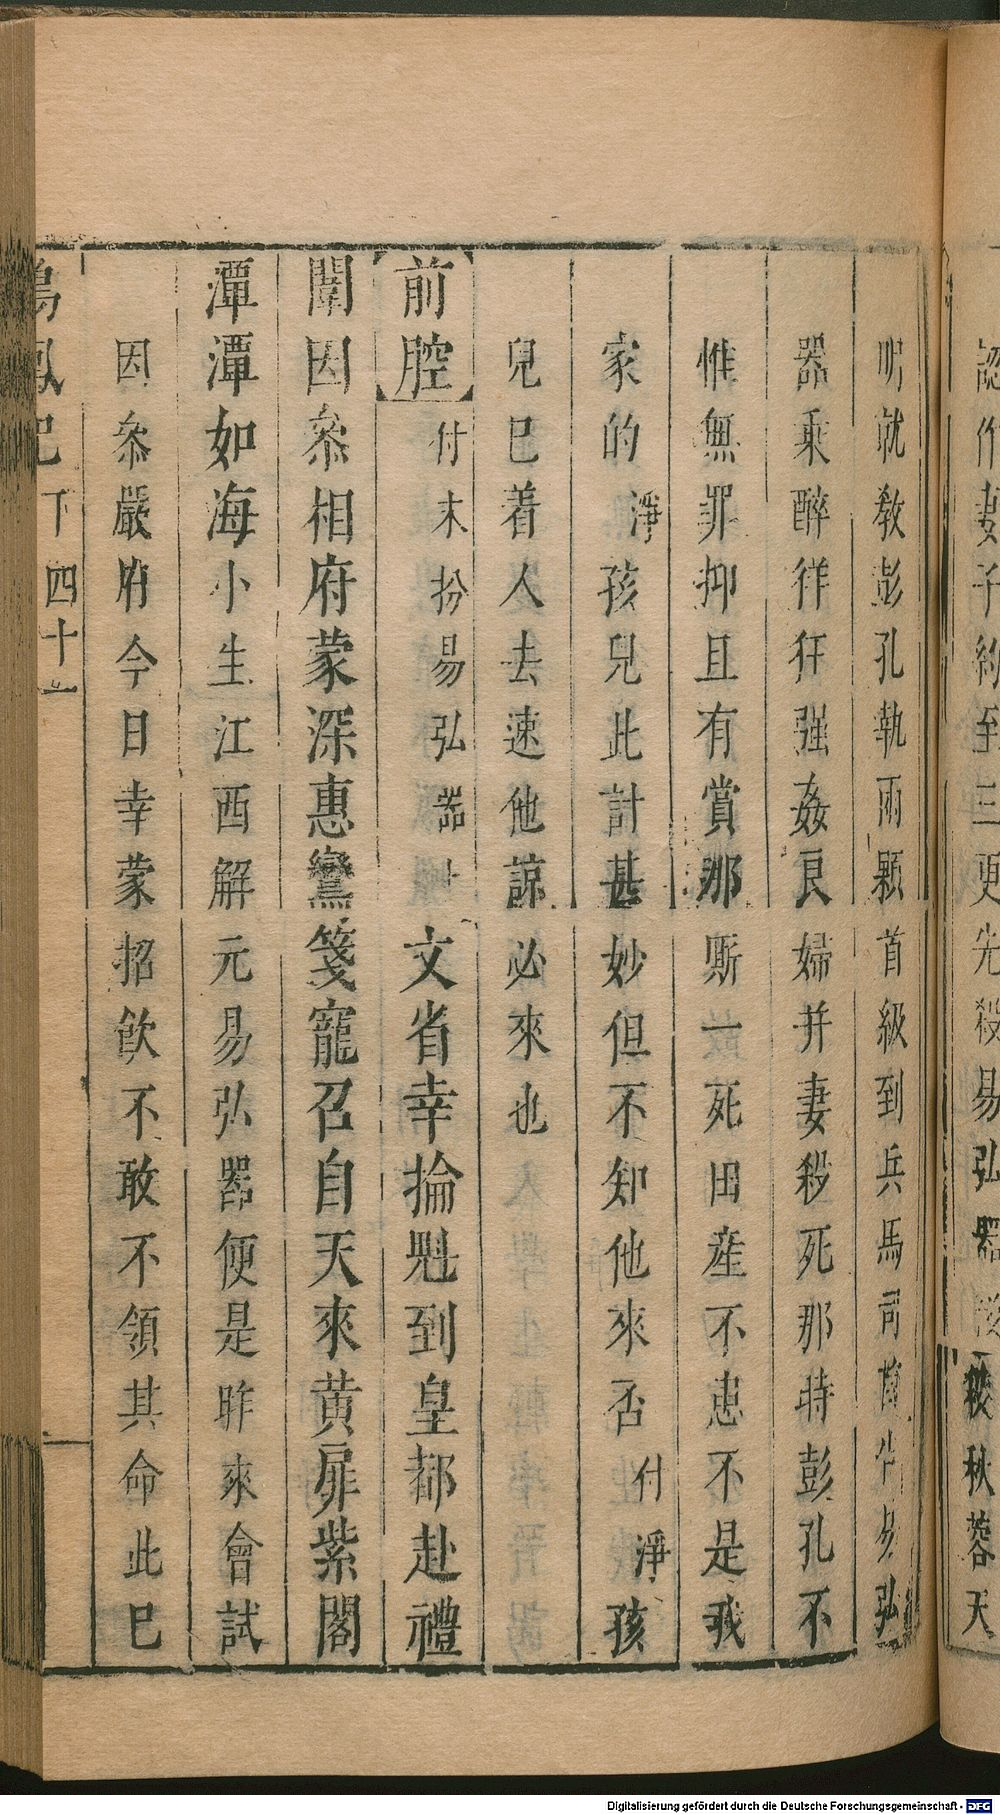 認作妻子約到三更先殺易弘器後殺秋蓉天
明就教彭孔執兩顆首級到兵馬司首告易弘
器乘醉徉狂强姦良婦并妻殺死那時彭孔不
惟無罪抑且有賞那厮一死田産不患不是我
家的淨孩兒此計甚妙但不知他來否付淨孩
兒已着人去速他諒必來也
前腔付末扮易弘器上文省幸掄魁到皇都赴禮
闈因叅相府蒙深惠鸞箋寵召自天來黄扉紫閣
潭潭如海小生江西解元易弘器便是昨來會試
因叅嚴府今日幸蒙招飲不敢不領其命此已
鳴鳳記下四十一
Digitalisierung gefördert durch die Deutsche Forschungsgemeinschaft - DFG